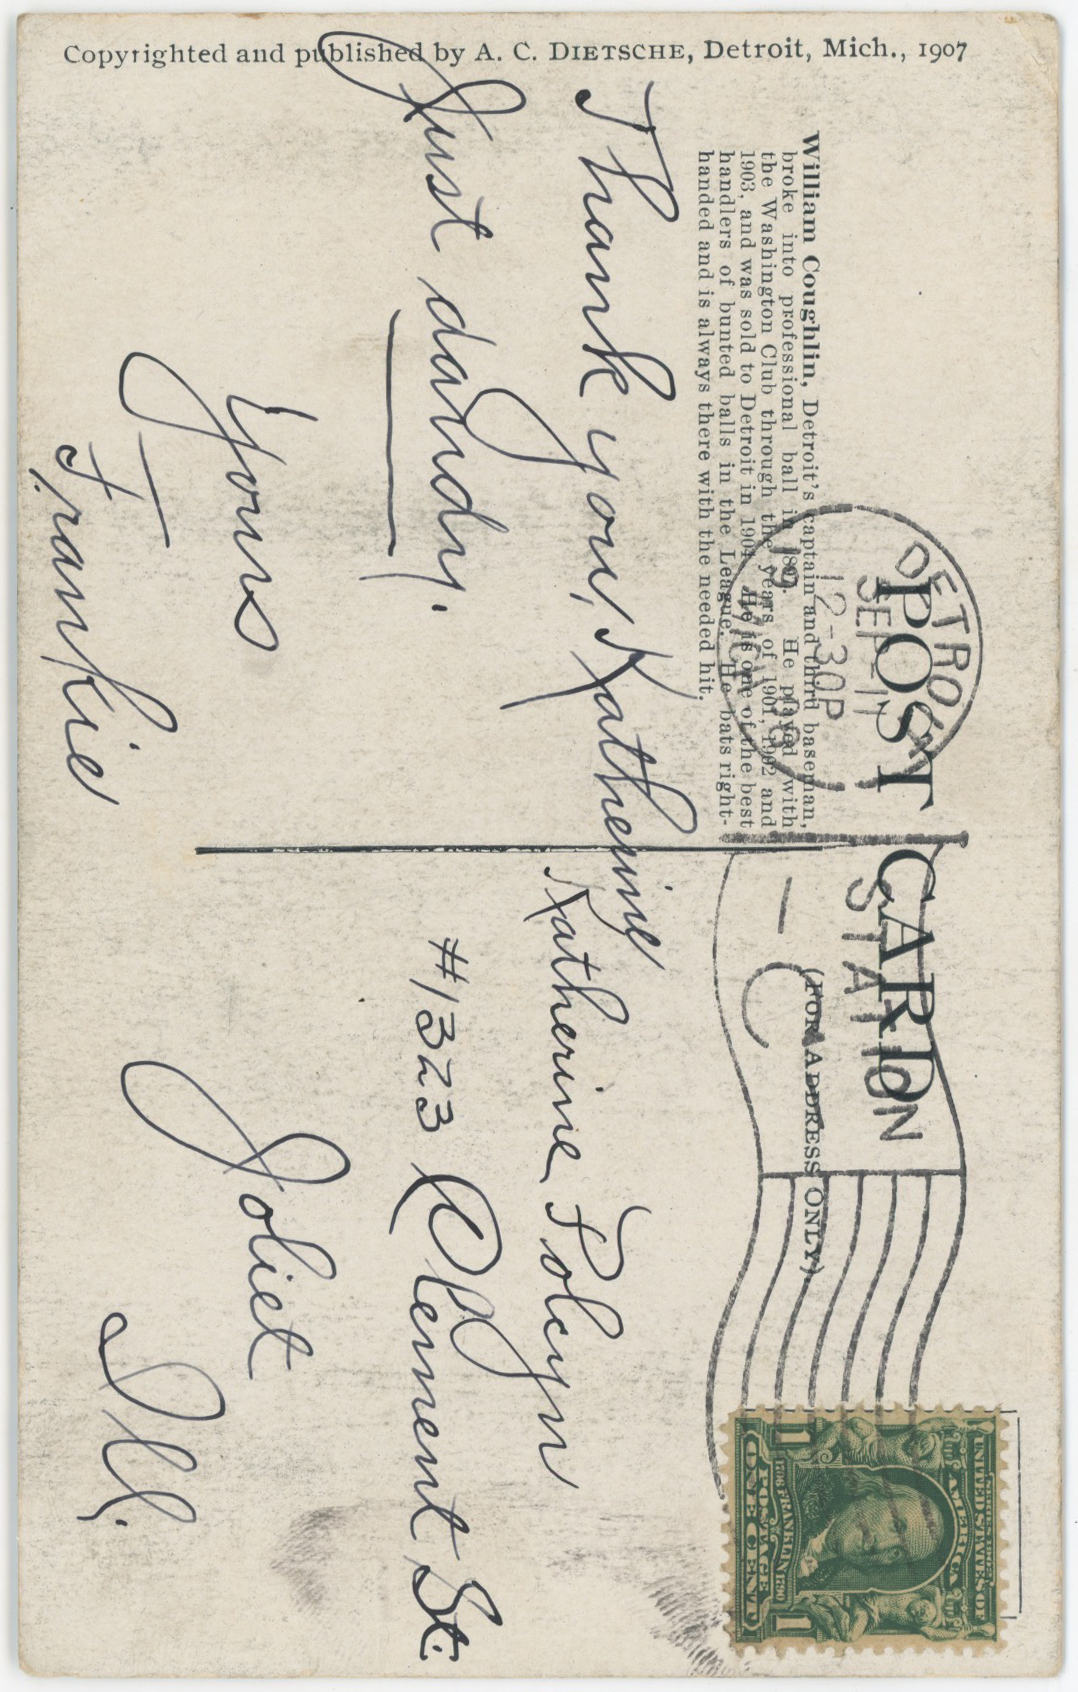 Copyrighted and published by A. C. DIETSCHE, Detroit, Mich., 1907
POST CARD
(FOR ADDRESS ONLY)
William Coughlin, Detroit's captain and third baseman,
broke into professional ball in He played with
the Washington Club through the years of 1901, 1902 and
1903, and was sold to Detroit in 1904. He is one of the best
handlers of bunted balls in the League. He bats right-
handed and is always there with the needed hit.
DETROIT
SEP 17
12-30P
MICH.
STATION
C
SERIES 1902
UNITED STATES OF
AMERICA
1706 FRANKLIN 1790
POSTAGE
1 ONE CENT 1
Thank you, Katherine
Just dandy.
Yours
Frankie
Katherine Polcyn
#1323 Clement St.
Joliet
Ill.